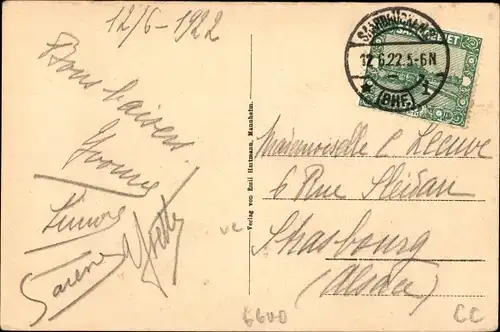 12/6-1922
Bons baisers.
Yvonne
SAARBRÜCKEN
12.6.22.5-6N
* (BHF.) *
Verlag von Emil Hartmann, Mannheim.
Mademoiselle C
6 Rue Sleidan
Strasbourg
(Alsace)
6600
CC